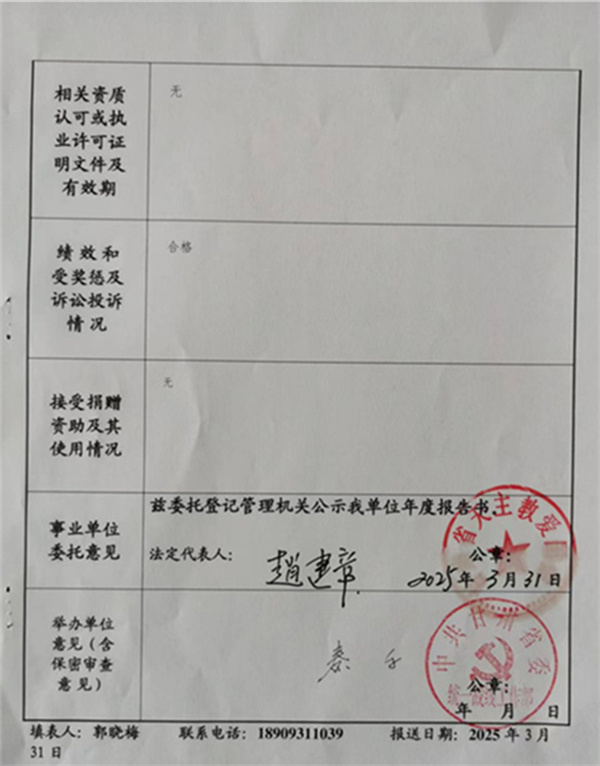 相关资质
认可或执
业许可证
明文件及
有效期
无
绩效和
受奖惩及
诉讼投诉
情况
合格
接受捐赠
资助及其
使用情况
无
事业单位
委托意见
兹委托登记管理机关公示我单位年度报告书。
法定代表人：
赵建章
公章：
2025年3月31日
省天主教爱
举办单位
意见（含
保密审查
意见）
中共甘肃省委
统一战线工作部
公章：
年 月 日
填表人：郭晓梅 联系电话：18909311039 报送日期：2025年3月
31日